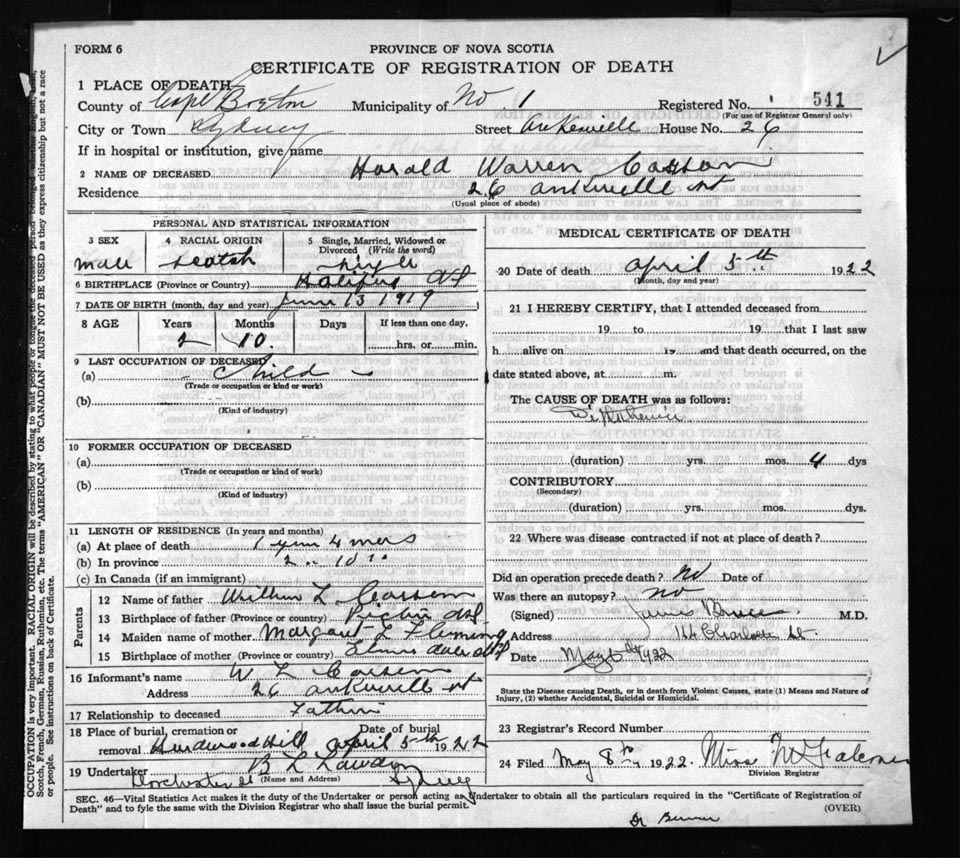 FORM 6
PROVINCE OF NOVA SCOTIA
CERTIFICATE OF REGISTRATION OF DEATH
1 PLACE OF DEATH
County of Cape Breton Municipality of No. 1 Registered No. 541
(For use of Registrar General only)
City or Town Sydney Street House No. 26
If in hospital or institution, give name
2 NAME OF DECEASED Harold Warren
Residence 26 St
(Usual place of abode)
PERSONAL AND STATISTICAL INFORMATION
3 SEX 4 RACIAL ORIGIN 5 Single, Married, Widowed or Divorced (Write the word)
male Scotch Single
6 BIRTHPLACE (Province or Country) Halifax NS
7 DATE OF BIRTH (month, day and year) June 13 1919
8 AGE Years Months Days If less than one day,
2 10 hrs. or min.
9 LAST OCCUPATION OF DECEASED
(a) Child
(Trade or occupation or kind of work)
(b)
(Kind of industry)
10 FORMER OCCUPATION OF DECEASED
(a)
(Trade or occupation or kind of work)
(b)
(Kind of industry)
11 LENGTH OF RESIDENCE (In years and months)
(a) At place of death 1 year 4 mos
(b) In province 2 " 10 "
(c) In Canada (if an immigrant)
Parents
12 Name of father L.
13 Birthplace of father (Province or country) Pictou NS
14 Maiden name of mother Margaret L Fleming
15 Birthplace of mother (Province or country)
16 Informant's name W L
Address 26 St
17 Relationship to deceased Father
18 Place of burial, cremation or removal Hardwood Hill Date of burial April 5th 1922
19 Undertaker B L
(Name and Address) Dorchester St Sydney
MEDICAL CERTIFICATE OF DEATH
20 Date of death April 5th 1922
(Month, day and year)
21 I HEREBY CERTIFY, that I attended deceased from
19 to 19 that I last saw
h alive on 19 and that death occurred, on the
date stated above, at m.
The CAUSE OF DEATH was as follows:
Diphtheria
(duration) yrs. mos. 4 dys
CONTRIBUTORY
(Secondary)
(duration) yrs. mos. dys.
22 Where was disease contracted if not at place of death?
Did an operation precede death? No Date of
Was there an autopsy? No
(Signed) James Bruce M.D.
Address 164 Charlotte St.
Date May 1922
State the Disease causing Death, or in death from Violent Causes, state (1) Means and Nature of
Injury, (2) whether Accidental, Suicidal or Homicidal.
23 Registrar's Record Number
24 Filed May 8th 1922 Miss
Division Registrar
SEC. 46—Vital Statistics Act makes it the duty of the Undertaker or person acting as Undertaker to obtain all the particulars required in the "Certificate of Registration of
Death" and to fyle the same with the Division Registrar who shall issue the burial permit.
(OVER)
Dr
OCCUPATION is very important. RACIAL ORIGIN will be described by stating to what people or tongue the deceased person belonged whether English, Irish,
Scotch, French, German, Russian, Ruthenian, etc. The terms "AMERICAN" OR "CANADIAN" MUST NOT BE USED as they express citizenship but not a race
or people. See instructions on back of Certificate.